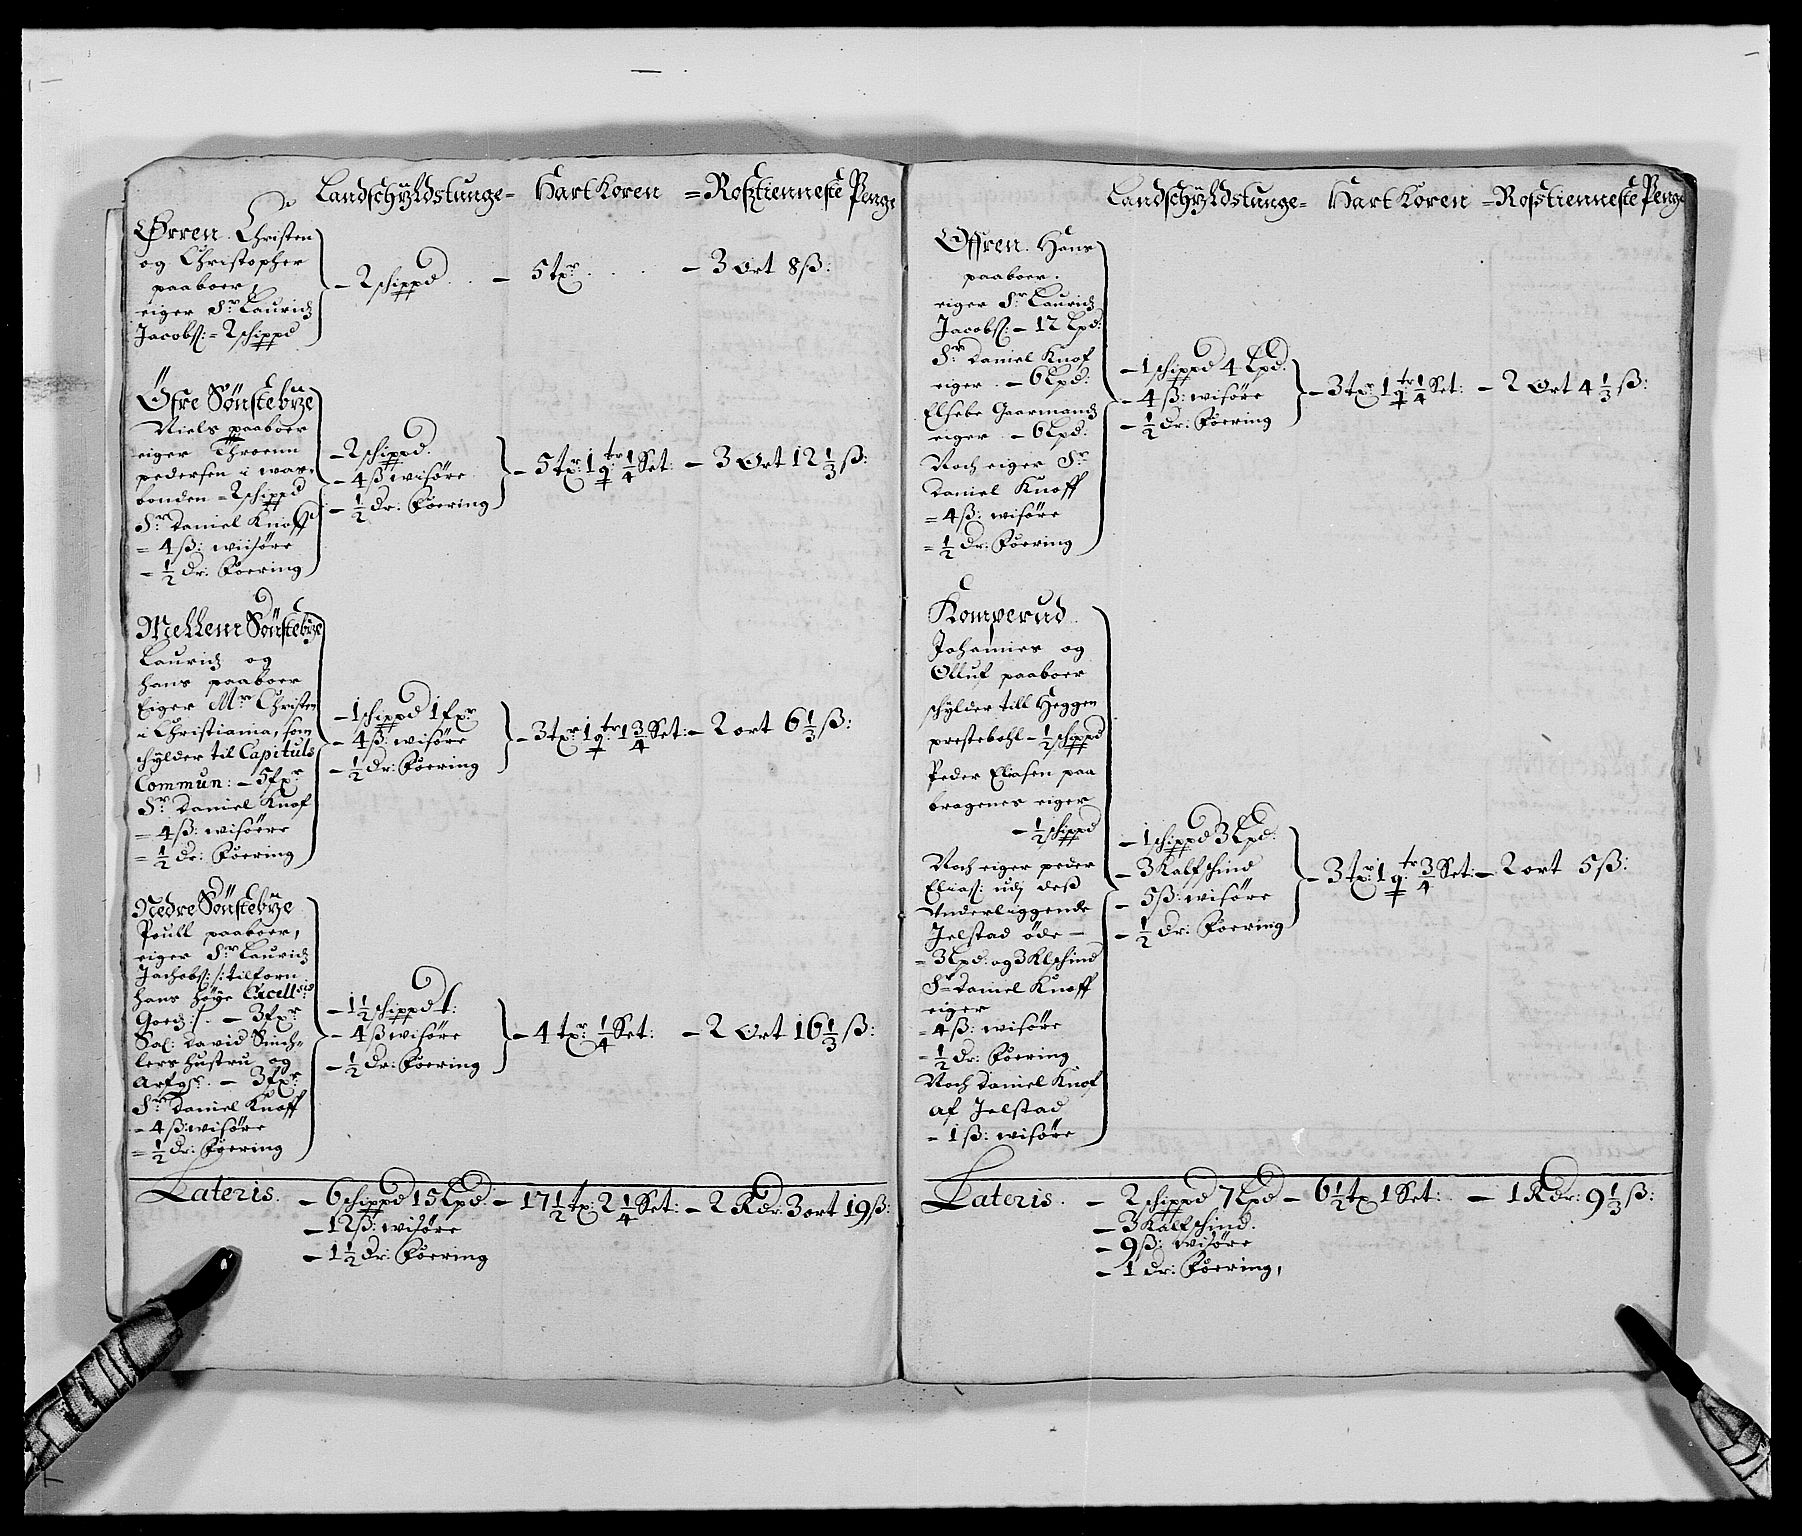 Landschÿldstunge = Hart Koren = Rosztienneste Penge
Ørren. Christen
og Christopher
paaboer,
eiger Sr Lauridz
Jacobs: = 2 schippd
- 2 schippd. - 5 txr. - 3 Ort 8 ß:
Öfre Sønstebye
Niels paaboer
eiger Throenn
pedersen i war-
bonden = 2 schippd
Sr Daniel Knoff
= 4 ß: wiisøre
= ½ dr: Føering
- 2 schippd.
- 4 ß wisøre
- ½ dr: Føering
- 5 txr: 1 qtr ¼ Set: - 3 Ort 12 ⅓ ß:
Mellem Sönstebye
Lauridz og
hans paaboer
Eiger Mr Christen
i Christiania, som
schylder til Capituls
Commun: - 5 fxr
Sr Daniel Knof
= 4 ß: wisøre
= ½ dr: Føering
- 1 schippd 1 fxr
- 4 ß: wisøre
- ½ dr: Føering
- 3 txr 1 qtr 1 ¾ Set: - 2 ort 6 ⅓ ß:
Nedre Sønstebye
Poull paaboer,
eiger Sr Lauridz
Jachobs: /: tilforn
hans høye Excell
Goedz :/. - 3 fxr
Sal: David Sinch-
lers hustru og
Arfgr. - 3 fxr
Sr Daniel Knoff
- 4 ß: wisøre
= ½ dr: Føering
- 1 ½ schippd:
- 4 ß wisøre
- ½ dr: Føering
- 4 txr ¼ Set: - 2 Ort 16 ⅓ ß:
Lateris. - 6 schippd 15 Lpd. - 17 ½ tx: 2 ¼ Set: - 2 Rdr. 3 ort 19 ß:
- 12 ß: wisøre
- 1 ½ dr: Føering
Landschÿldstunge = Hart Koren = Rostienneste Penge
Offren. Hans
paaboer.
eiger Sr Lauridz
Jacobs: - 12 Lpd:
Sr Daniel Knof
eiger. - 6 Lpd:
Elsebe Gaarmandz
eiger. - 6 Lpd:
Noch eiger Sr
Daniel Knoff
= 4 ß: wisøre
= ½ dr: Føering
- 1 schippd 4 Lpd.
- 4 ß: wisøre
- ½ dr: Føering
- 3 txr 1 qtr ¼ Set: - 2 Ort 4 ⅓ ß:
Komperud
Johannes og
Olluf paaboer
schylder till Heggen
prestebohl - ½ schippd
Peder Eliasen paa
bragenes eiger
- ½ schippd
Noch eiger peder
Elias: udj dess
Underliggende
Jelstad öde -
= 3 Lpd: og 3 Klschind
Sr Daniel Knoff
eiger
- 4 ß: wisøre
- ½ dr: Føering
Noch Daniel Knof
af Jelstad
- 1 ß: wisøre
- 1 schippd 3 Lpd:
- 3 Kalfschind
- 5 ß: wisøre
- ½ dr: Føering
- 3 txr 1 qtr ¾ Set: - 2 ort 5 ß:
Lateris. - 2 schippd 7 Lpd - 6 ½ tx 1 Set: - 1 Rdr: 9 ⅓ ß:
- 3 Kalfschind.
- 9 ß: wisøre
- 1 dr: Føering,